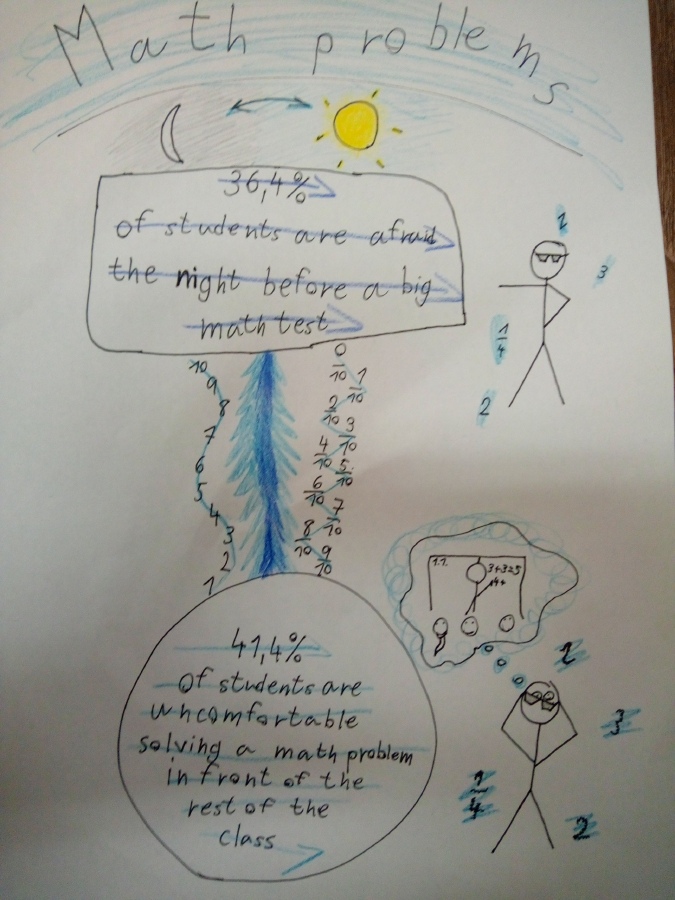 Math problems
36,4%
of students are afraid
the night before a big
math test
10
9
8
7
6
5
4
3
2
1
0/10
1/10
2/10
3/10
4/10
5/10
6/10
7/10
8/10
9/10
1
3
1/4
2
41,4%
of students are
uncomfortable
solving a math problem
in front of the
rest of the
class
2
3
1/4
2